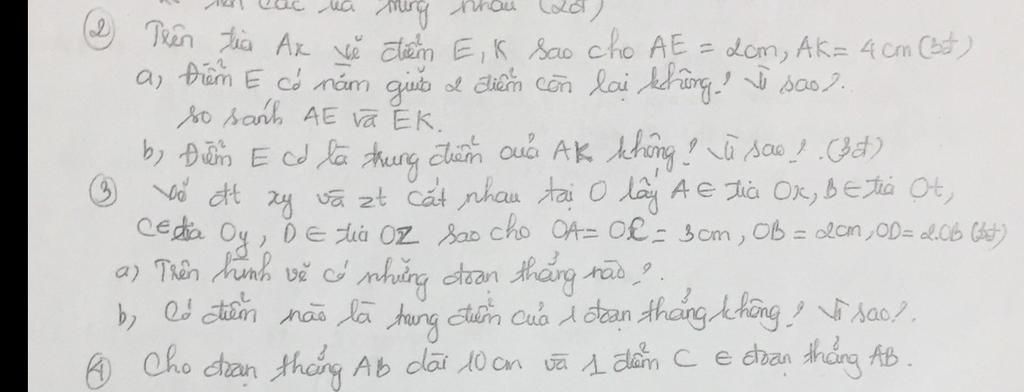 các tia trùng nhau (2đ)
② Trên tia Ax vẽ điểm E, K sao cho AE = 2cm, AK = 4cm (3đ)
a, Điểm E có nằm giữa 2 điểm còn lại không? Vì sao?
so sánh AE và EK.
b, Điểm E có là trung điểm của AK không? Vì sao? (3đ)
③ Vẽ đt xy và zt cắt nhau tại O lấy A ∈ tia Ox, B ∈ tia Ot,
C ∈ tia Oy, D ∈ tia OZ sao cho OA = OC = 3cm, OB = 2cm, OD = 2.OB (3đ)
a) Trên hình vẽ có những đoạn thẳng nào?
b, Có điểm nào là trung điểm của 1 đoạn thẳng không? Vì sao?
④ Cho đoạn thẳng AB dài 10 cm và 1 điểm C ∈ đoạn thẳng AB.